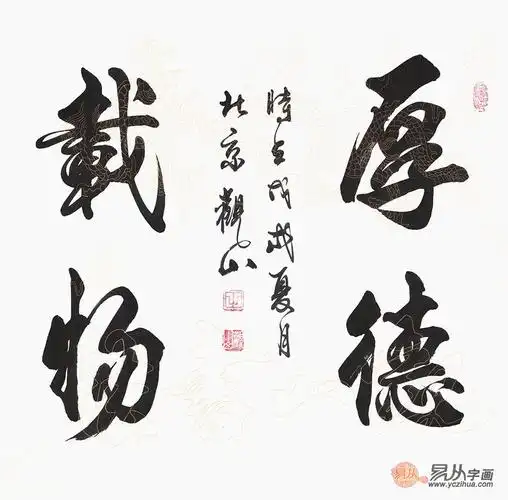 厚德
載物
時在戊戌夏月
北京觀山
易从字画
www.yczihua.com